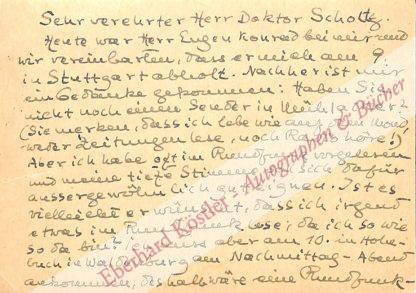 Sehr verehrter Herr Doktor Scholtz.
Heute war Herr Eugen Konrad bei mir und
wir vereinbarten, dass er mich am 9.
in Stuttgart abholt. Nachher ist mir
ein Gedanke gekommen: Haben Sie
nicht noch einen Sender in Mühlacker?
(Sie merken, dass ich lebe wie auf dem Mond
weder Zeitungen lese, noch Radio höre!)
Aber ich habe oft im Rundfunk vorgelesen
und meine tiefe Stimme sich dafür
aussergewöhnlich gut eignen. Ist es
vielleicht erwünscht, dass ich irgend
etwas im Rundfunk lese, da ich so wie
so da bin? aber am 10. in Hohe-
buch in Waldenburg am Nachmittag-Abend
ankommen, deshalb wäre eine Rundfunk-
Eberhard Köstler Autographen & Bücher